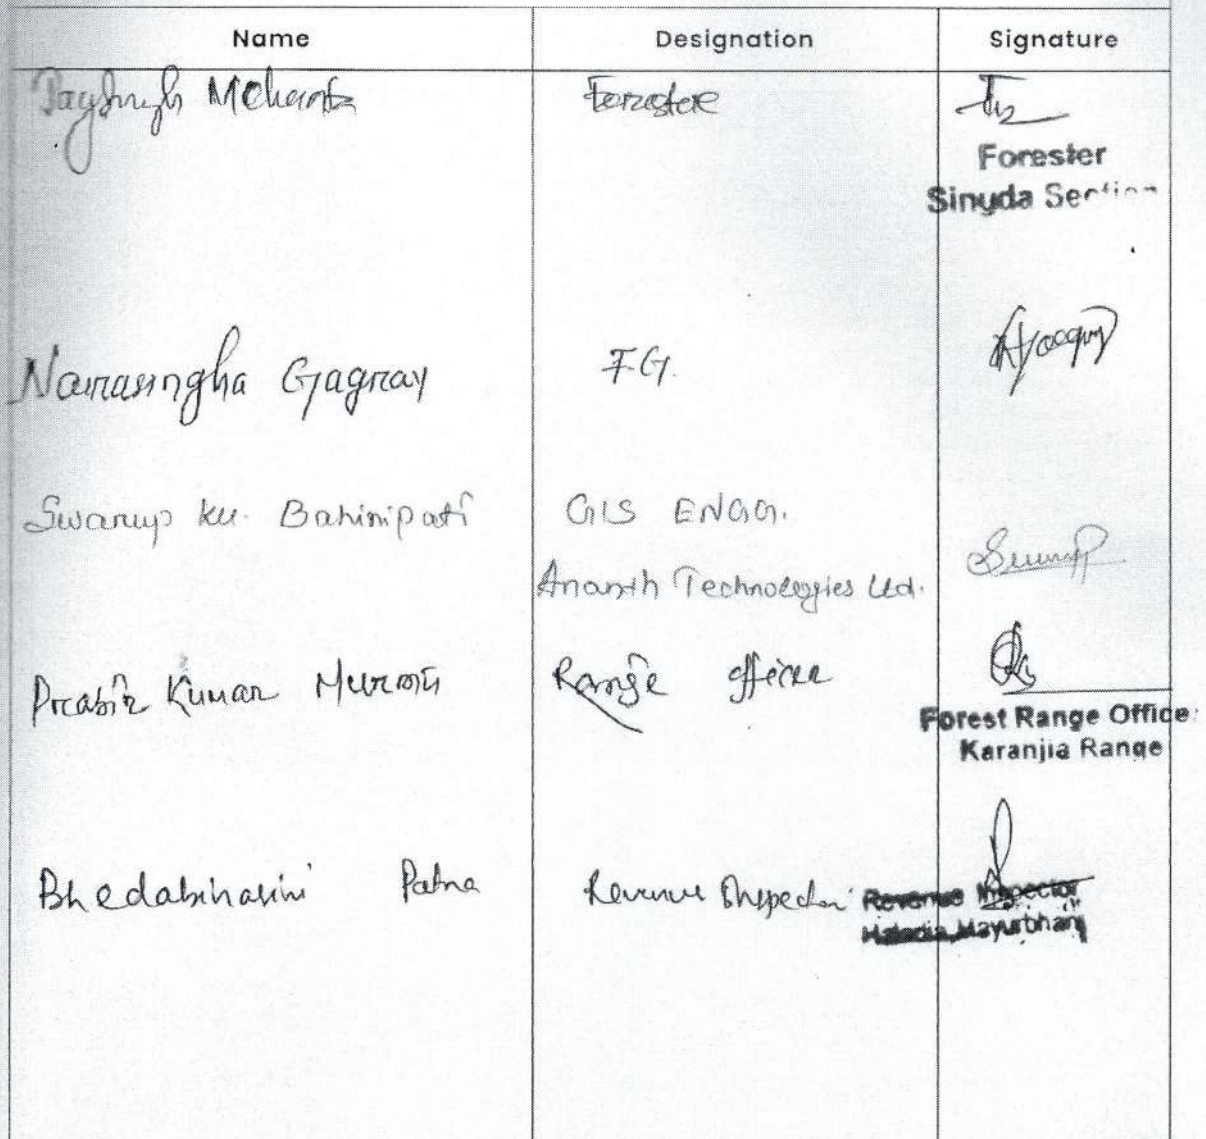 Name Designation Signature
Mohanta Forester
Forester
Sinuda Section
Narasingha Gagray F.G.
Swarup ku. Bahinipati GIS ENGG.
Ananth Technologies Ltd.
Prabir Kumar Murmu Range officer
Forest Range Office
Karanjia Range
Bhedabinasini Patra Revenue Inspector
Revenue Inspector
Haladia, Mayurbhanj